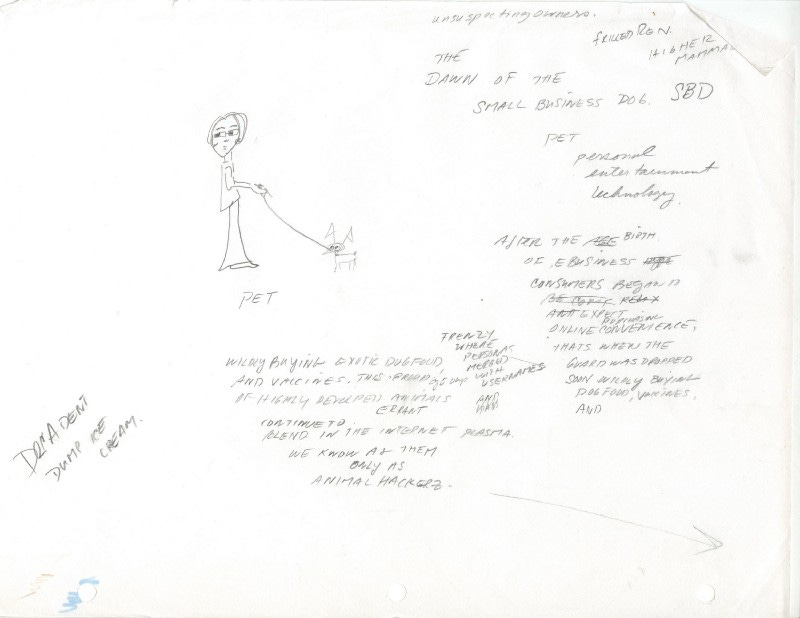 unsuspecting owners.
HIGHER
MAMMAL
THE
DAWN OF THE
SMALL BUSINESS DOG. SBD
PET
personal
entertainment
technology.
AFTER THE AGE BIRTH
OF EBUSINESS
CONSUMERS BEGAN TO
RELAX
AND EXPECT
ONLINE CONVENIENCE,
THATS WHEN THE
GUARD WAS DROPPED
SOON WILDLY BUYING
DOGFOOD, VACCINES,
AND
PET
FRENZY
WHERE
PERSONAS
MERGED
WITH
USERNAMES
AND
WILDLY BUYING EXOTIC DOGFOOD,
AND VACCINES. THIS GROUP
OF HIGHLY DEVELOPED ANIMALS
ERRANT
CONTINUE TO
BLEND IN THE INTERNET PLASMA.
WE KNOW AT THEM
ONLY AS
ANIMAL HACKERZ.
DNA DENT
DUMP ICE
CREAM.